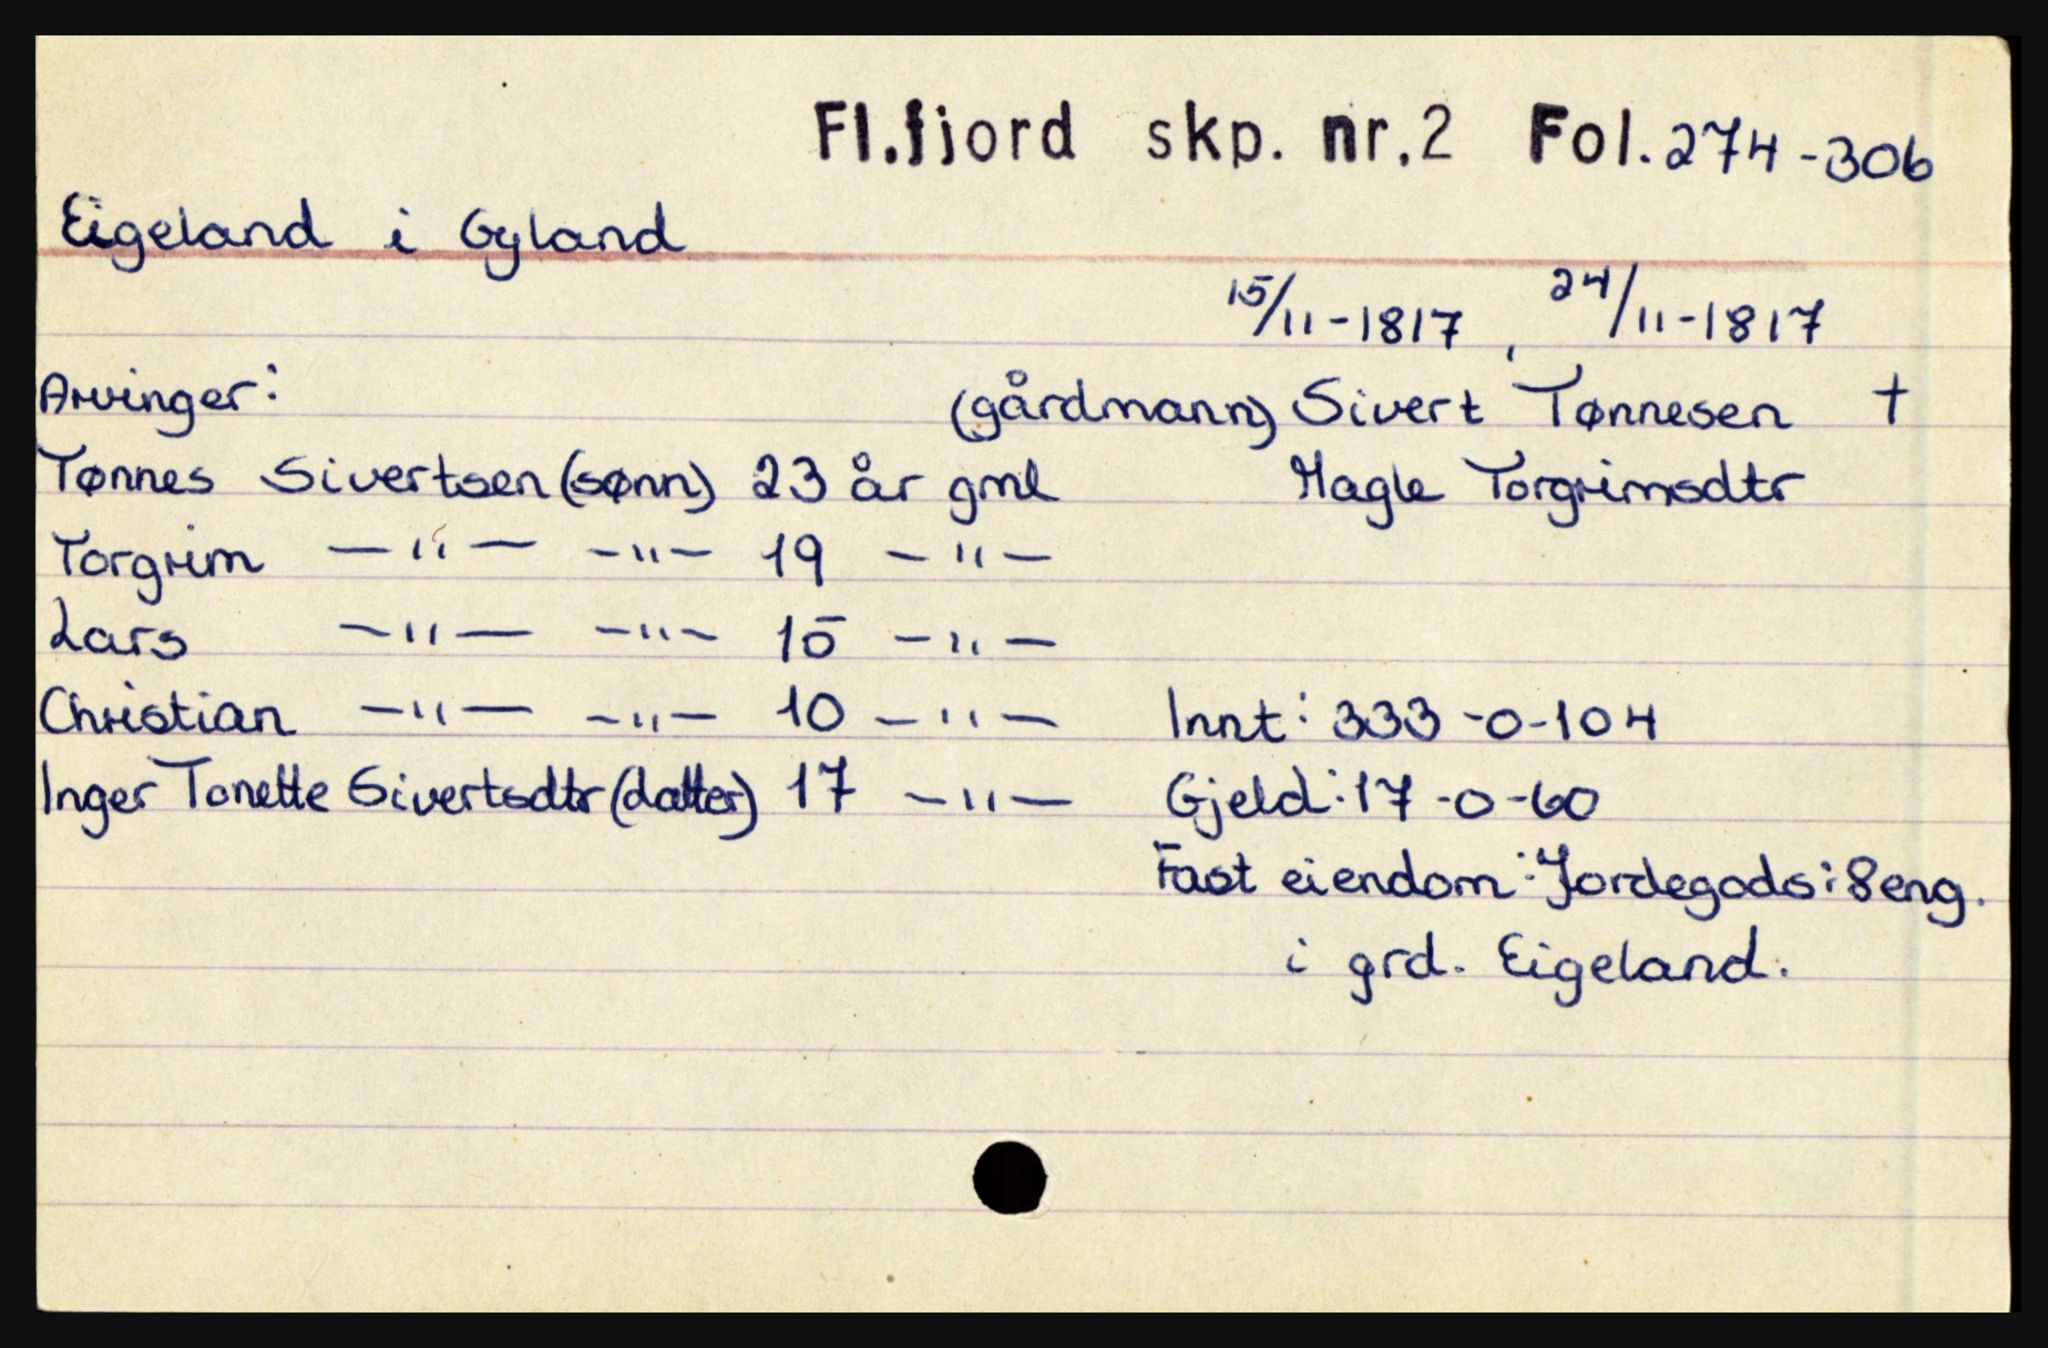 Fl.fjord skp. nr.2 Fol. 274-306
Eigeland i Gyland
15/11-1817, 24/11-1817
Arvinger: (gårdmann) Sivert Tønnesen †
Tønnes Sivertsen (sønn) 23 år gml Magle Torgrimsdtr
Torgrim —"— —"— 19 —"—
Lars —"— —"— 15 —"—
Christian —"— —"— 10 —"— Innt: 333-0-104
Inger Tonette Sivertsdtr (datter) 17 —"— Gjeld: 17-0-60
Fast eiendom: Jordegods: 8 eng.
i grd. Eigeland.